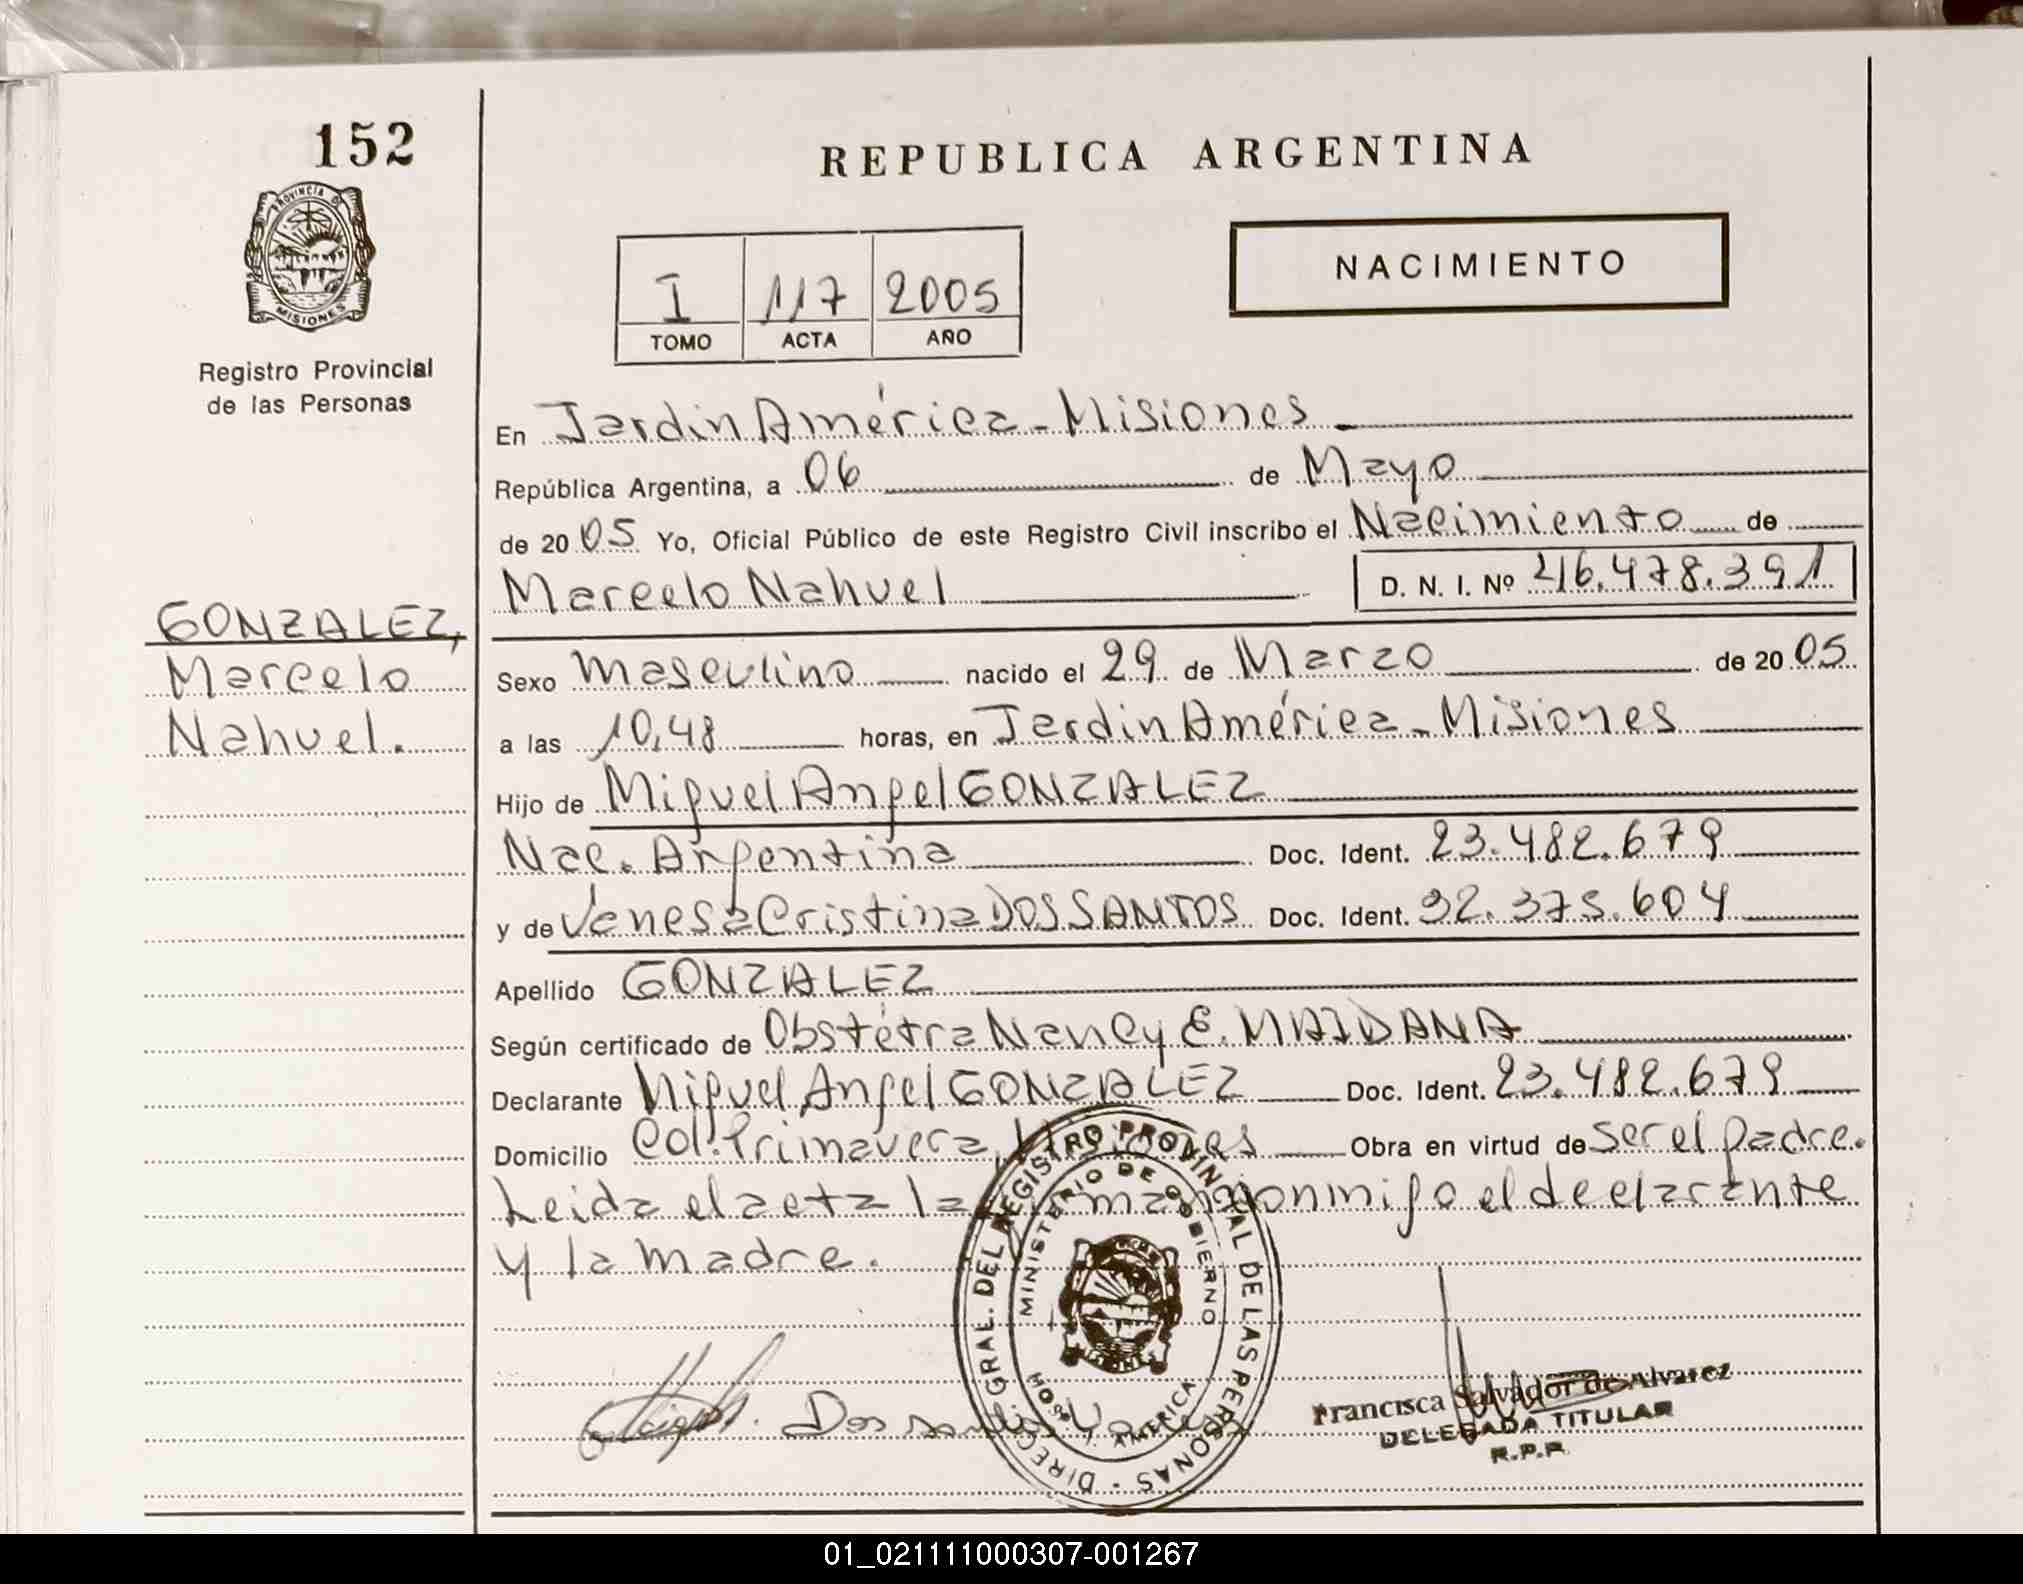 152
REPUBLICA ARGENTINA
PROVINCIA DE
MISIONES
Registro Provincial
de las Personas
I 117 2005
TOMO ACTA AÑO
NACIMIENTO
En Jardin América - Misiones
República Argentina, a 06 de Mayo
de 20 05 Yo, Oficial Público de este Registro Civil inscribo el Nacimiento de
Marcelo Nahuel D. N. I. Nº 46.478.391
GONZALEZ,
Marcelo
Nahuel.
Sexo Masculino nacido el 29 de Marzo de 20 05
a las 10,48 horas, en Jardin América - Misiones
Hijo de Miguel Angel GONZALEZ
Nac. Argentina Doc. Ident. 23.482.679
y de Vanesa Cristina DOS SANTOS Doc. Ident. 32.375.604
Apellido GONZALEZ
Según certificado de Obstétra Nancy E. MAIDANA
Declarante Miguel Angel GONZALEZ Doc. Ident. 23.482.679
Domicilio Col. Primavera, Misiones Obra en virtud de ser el padre.
Leida el acta la firman conmigo el declarante
y la madre.
DIREC. GRAL. DEL REGISTRO PROVINCIAL DE LAS PERSONAS
MINISTERIO DE GOBIERNO
AMERICA
MISIONES
Dos santos
Francisca Salvador de Alvarez
DELEGADA TITULAR
R.P.P.
01_021111000307-001267